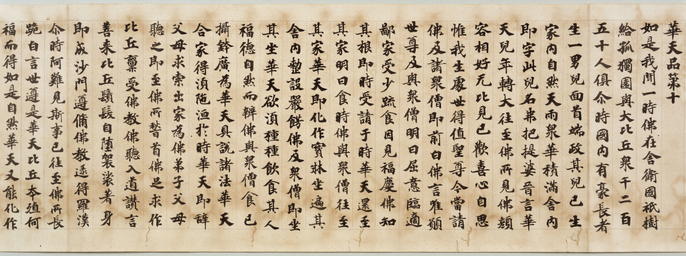 華天品第十
如是我聞一時佛在舍衛國祇樹
給孤獨園與大比丘衆千二百
五十人俱尒時國内有豪長者
生一男兒面首端政其兒已生
家内自然天雨衆華積滿舍内
即字此兒名弗把提婆晉言華
天兒年轉大往至佛所見佛顏
容相好无比見已歡喜心自思
惟我生處世得值聖尊今當請
佛及諸衆僧即前白佛言唯願
世尊及與衆僧明日屈意臨適
鄙家受少蔬食因見福慶佛知
其根即時受請于時華天還至
其家明日食時佛與衆僧往至
其家華天即化作寶牀坐遍其
舍内整設嚴餝佛及衆僧即坐
其坐華天欲須種種飲食其人
福德自然而辦佛與衆僧食已
攝鉢廣爲華天具説諸法華天
合家得湏陁洹於時華天即辭
父母求索出家爲佛弟子父母
聽之即至佛所䭫首佛足求作
比丘稟受佛教佛聽入道讃言
善來比丘頭髮自墮袈裟著身
即成沙門遵脩佛教逮得羅漢
尒時阿難見斯事已往至佛所長
跪白言世尊是華天比丘本殖何
福而得如是自然華天又能化作